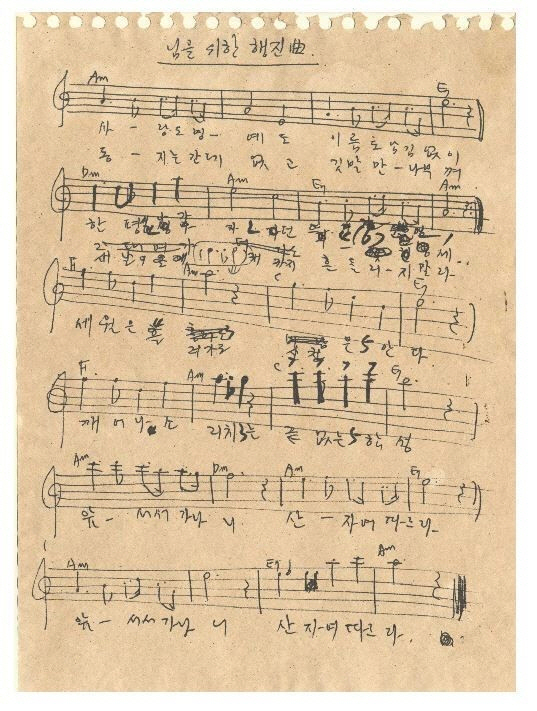 님을 위한 행진曲.
Am G
사 - 랑도 명 - 예도 이름도 남김 없이
동 - 지는 간데 없고 깃발만 - 나부껴
Dm Am E7 Am
한 평생 나가자던
세 까지 흔들리 - 지 말라
F Am C G
세월은 흘
러가도 은 안다
F Am C E7
깨어나 소리치는 끝 없는 함성
Am Dm Am G
앞 - 서서 가나니 산 - 자여 따르라
Am E7 Am
앞 - 서서 가나니 산 자여 따르라.